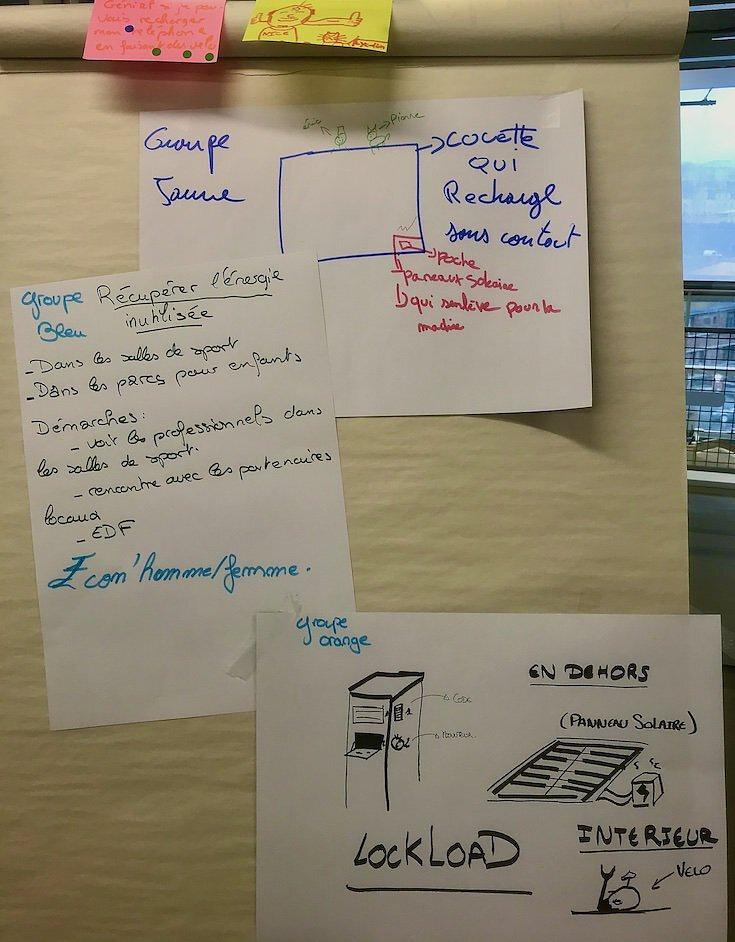 Génial si je pou
vais recharger
mon téléphone
en faisant du vélo
NICE
Groupe
Jaune
Pierre
COUETTE
QUI
Recharge
sans contact
poche
panneaux solaire
qui senlève pour la
groupe
Bleu
Récupérer l'énergie
inutilisée
- Dans les salles de sport
- Dans les parcs pour enfants
Démarches:
- voir les professionnels dans
les salles de sport.
- rencontre avec les partenaires
locaux
- EDF
Econ'homme/femme.
groupe
orange
CODE
LOCKLOAD
EN DEHORS
(PANNEAU SOLAIRE)
INTERIEUR
VELO